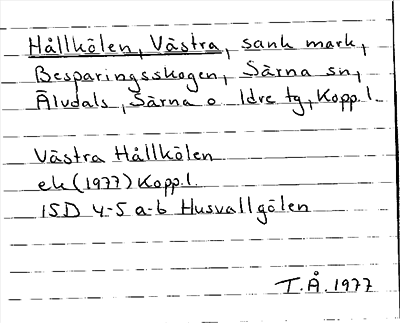 Hållkölen, Västra, sank mark,
Besparingsskogen, Särna sn,
Älvdals, Särna o Idre tg, Kopp.l.
Västra Hållkölen
ek (1977) Kopp.l.
15D 4-5 a-b Husvallgölen
T.Å. 1977